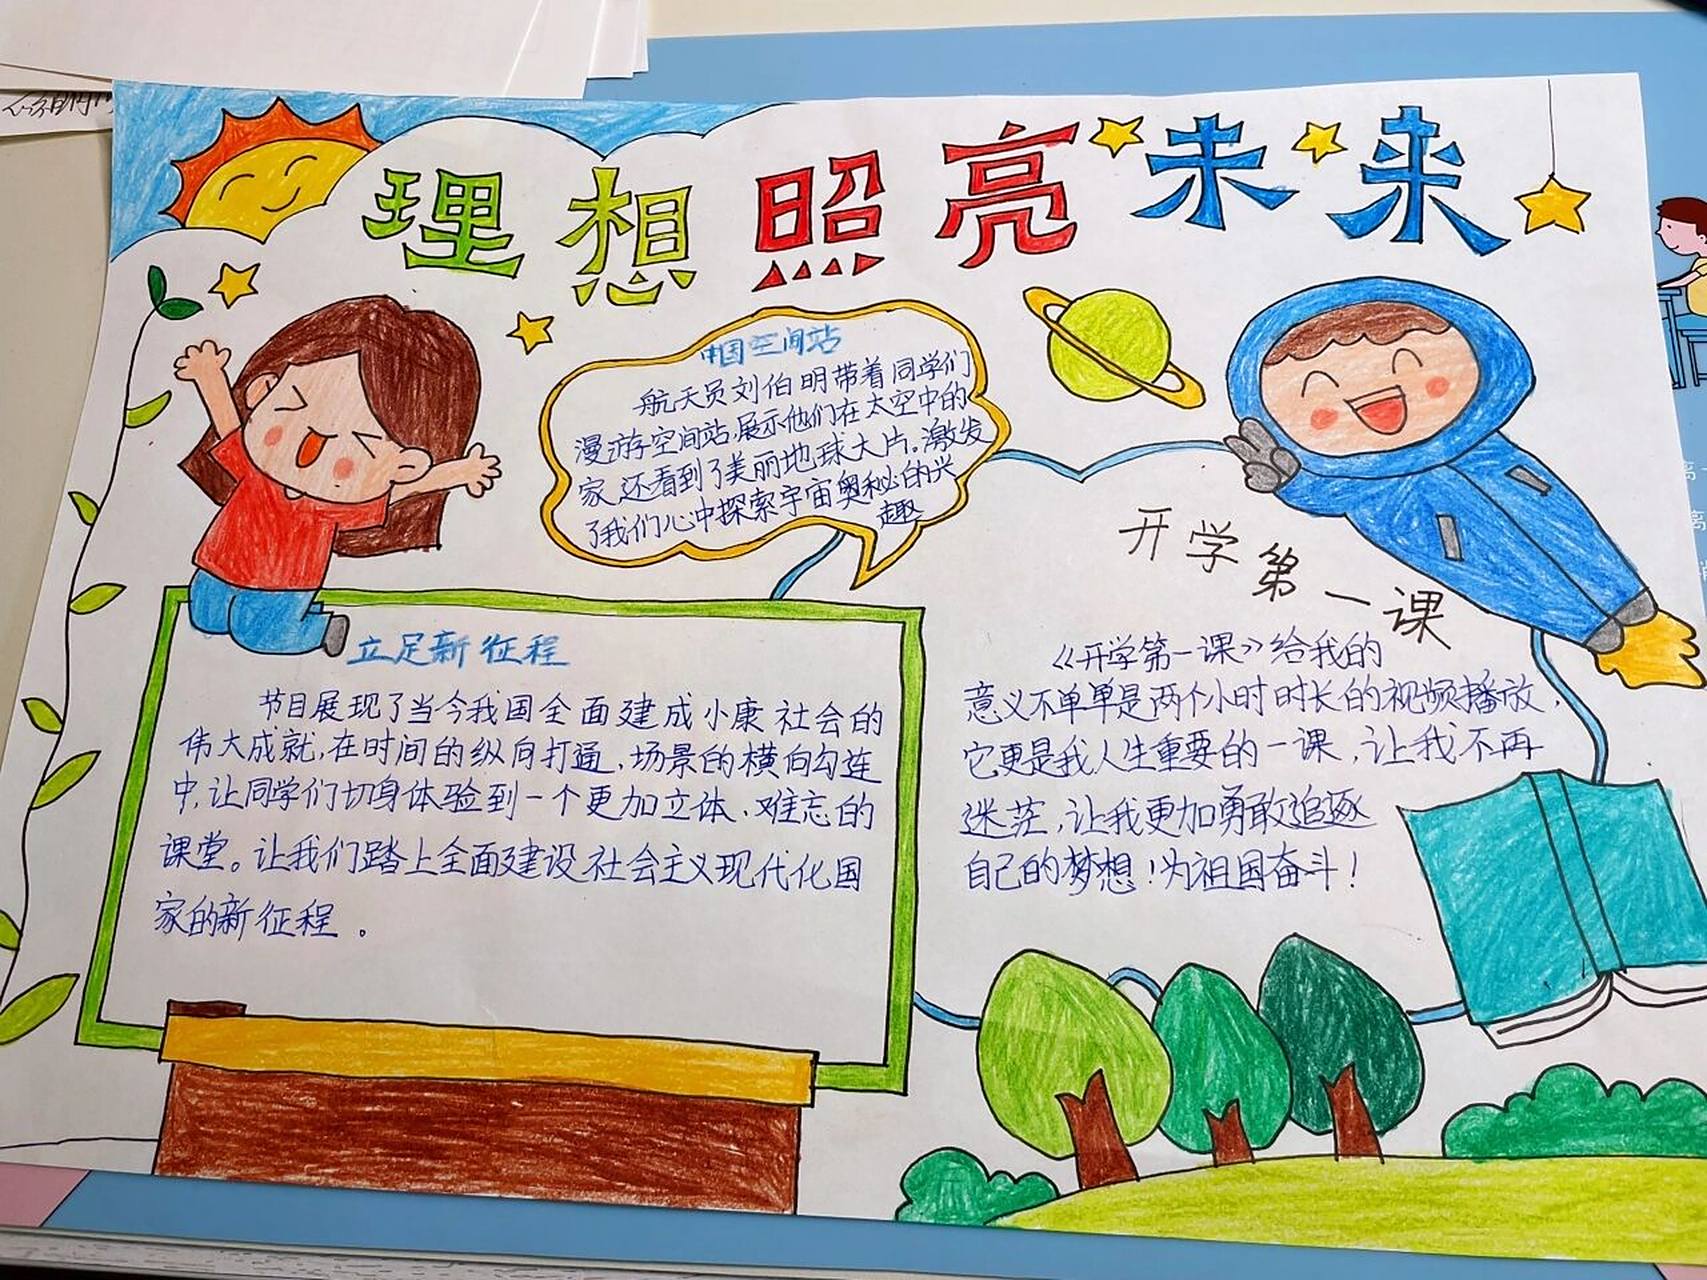 理想照亮未来
中国空间站
航天员刘伯明带着同学们
漫游空间站,展示他们在太空中的
家,还看到了美丽地球大片。激发
了我们心中探索宇宙奥秘的兴
趣
开学第一课
立足新征程
节目展现了当今我国全面建成小康社会的
伟大成就,在时间的纵向打通,场景的横向勾连
中,让同学们切身体验到一个更加立体、难忘的
课堂。让我们踏上全面建设社会主义现代化国
家的新征程。
《开学第一课》给我的
意义不单单是两个小时时长的视频播放,
它更是我人生重要的一课,让我不再
迷茫,让我更加勇敢追逐
自己的梦想!为祖国奋斗!